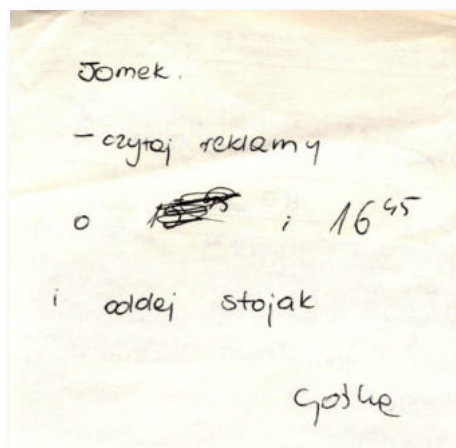 Tomek.
- czytaj reklamy
o i 16 45
i oddej stojak
Gośkę